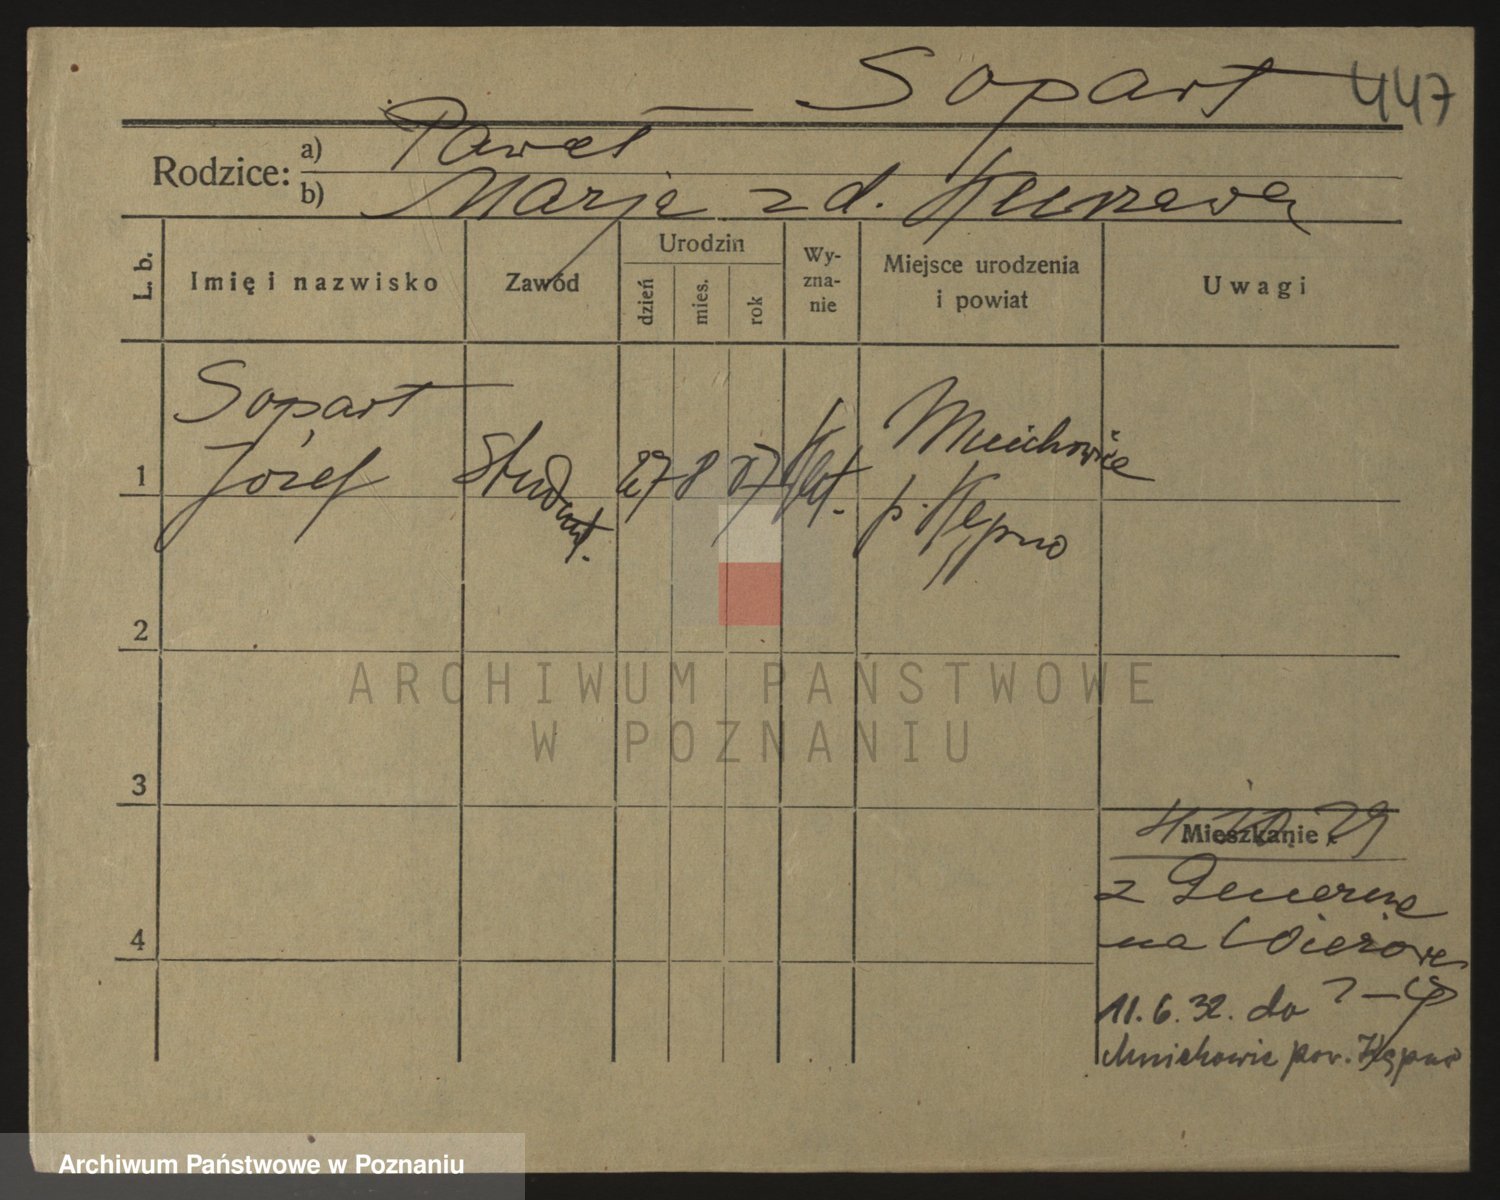 Sopart 447
Rodzice: a) Paweł
b) Marja z d.
L. b. Imię i nazwisko Zawód Urodzin dzień mies. rok Wy-zna-nie Miejsce urodzenia i powiat Uwagi
1 Sopart Józef Student. 27 8 07 kat. Mnichowice
p. Kępno
2
3
4
Mieszkanie
29
z
na
11.6.32. do
Mnichowic pow. Kępno
ARCHIWUM PAŃSTWOWE
W POZNANIU
Archiwum Państwowe w Poznaniu